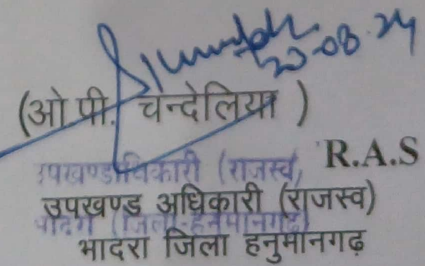 20-08-24
(ओ.पी. चन्देलिया )
उपखण्डाधिकारी (राजस्व) R.A.S
उपखण्ड अधिकारी (राजस्व)
भादरा (जिला-हनुमानगढ़)
भादरा जिला हनुमानगढ़